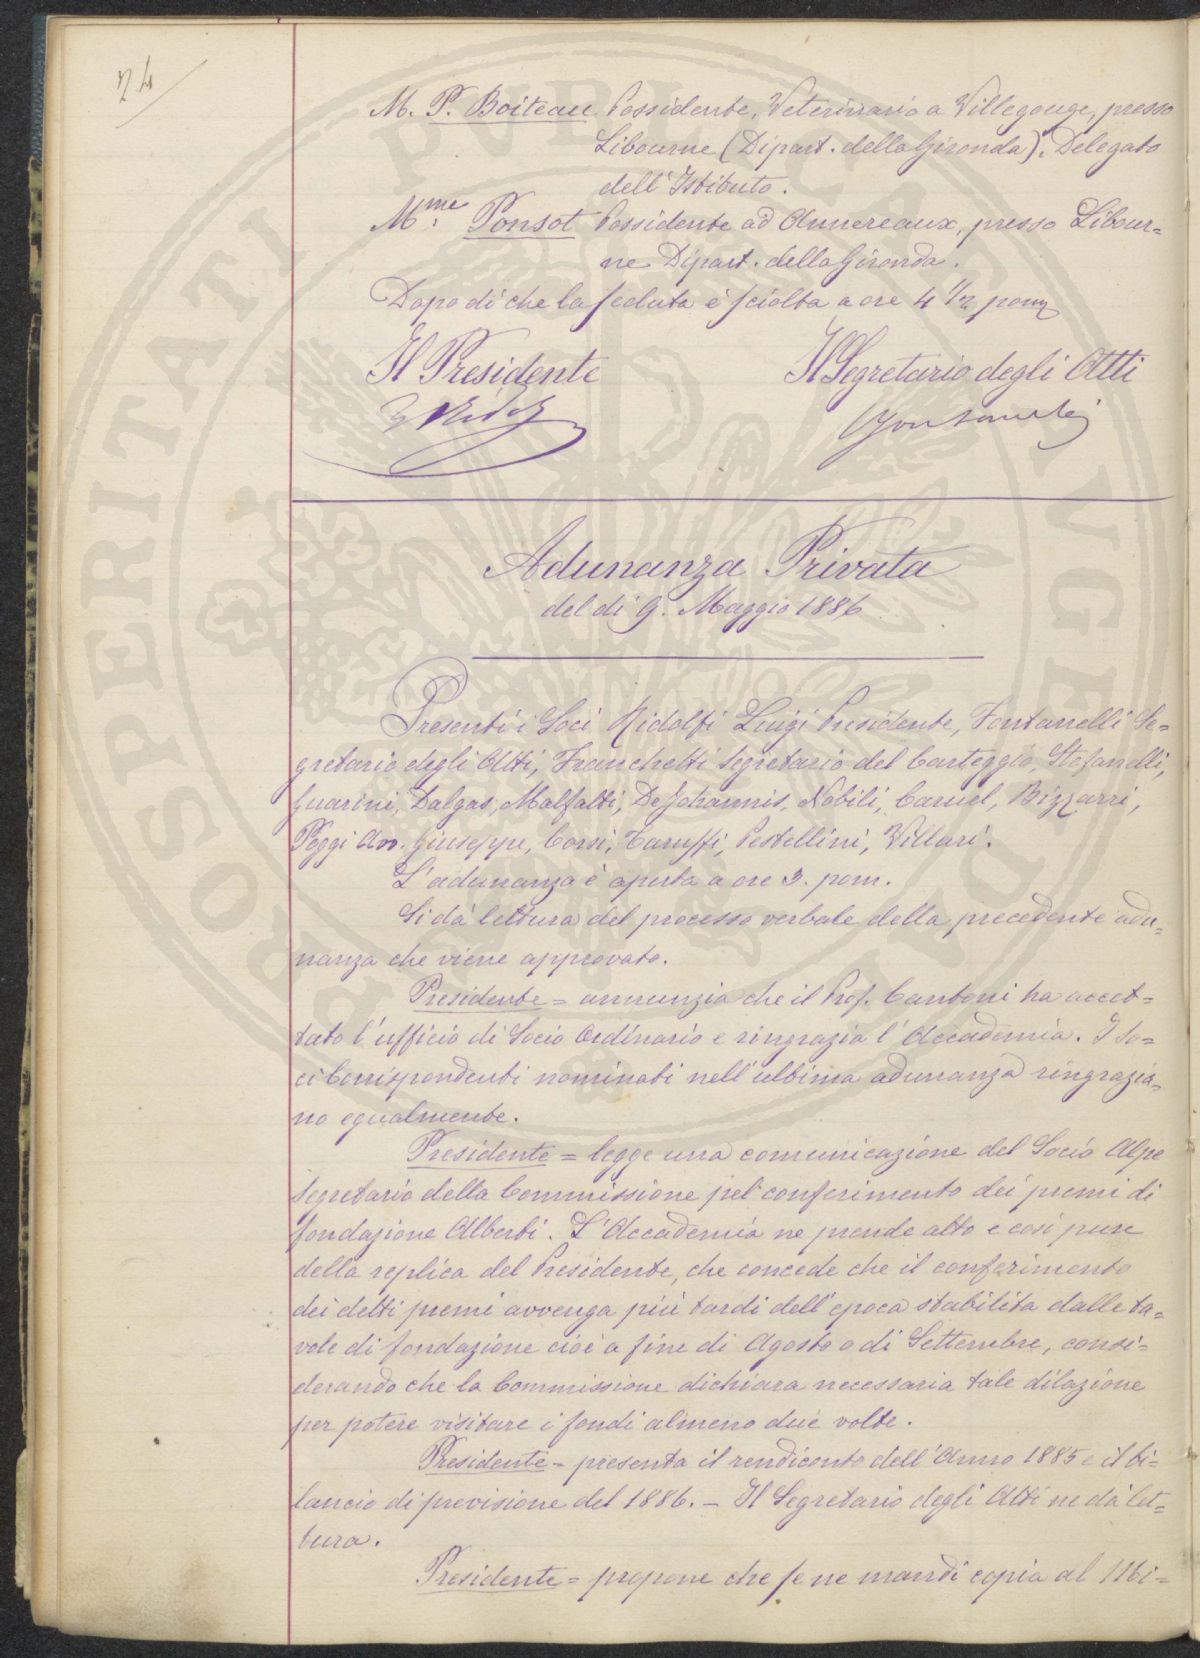 24
M. P. Boiteau Possidente, Veterinario a Villegouge, presso
Libourne (Dipart. della Gironda). Delegato
dell'Istituto.
Mme. Ponsot Possidente ad Annereaux, presso Libour=
ne Dipart. della Gironda.
Dopo di che la seduta è sciolta a ore 4 1/2 pom
Il Presidente
Il Segretario degli Atti
L Ridolfi
Adunanza Privata
del dì 9. Maggio 1886
Presenti i Soci Ridolfi Luigi Presidente, Fontanelli Se=
gretario degli Atti, Franchetti Segretario del Carteggio, Stefanelli,
Guarini, Dalgas, Malfatti, DeJohannis, Nobili, Caruel, Bizzarri,
Poggi Avv. Giuseppe, Corsi, Taruffi, Pestellini, Villari.
L'adunanza è aperta a ore 3. pom.
Si dà lettura del processo verbale della precedente adu=
nanza che viene approvato.
Presidente = annunzia che il Prof. Cantoni ha accet=
tato l'ufficio di Socio Ordinario e ringrazia l'Accademia. I So=
ci Corrispondenti nominati nell'ultima adunanza ringrazia=
no egualmente.
Presidente = legge una comunicazione del Socio Alpe
Segretario della Commissione pel conferimento dei premi di
fondazione Alberti. L'Accademia ne prende atto e così pure
della replica del Presidente, che concede che il conferimento
dei detti premi avvenga più tardi dell'epoca stabilita dalle ta=
vole di fondazione cioè a fine di Agosto o di Settembre, consi=
derando che la Commissione dichiara necessaria tale dilazione
per potere visitare i fondi almeno due volte.
Presidente = presenta il rendiconto dell'Anno 1885 e il bi=
lancio di previsione del 1886. – Il Segretario degli Atti ne dà let=
tura.
Presidente = propone che se ne mandi copia al Mi=
PROSPERITATI PUBLICAE AUGENDAE